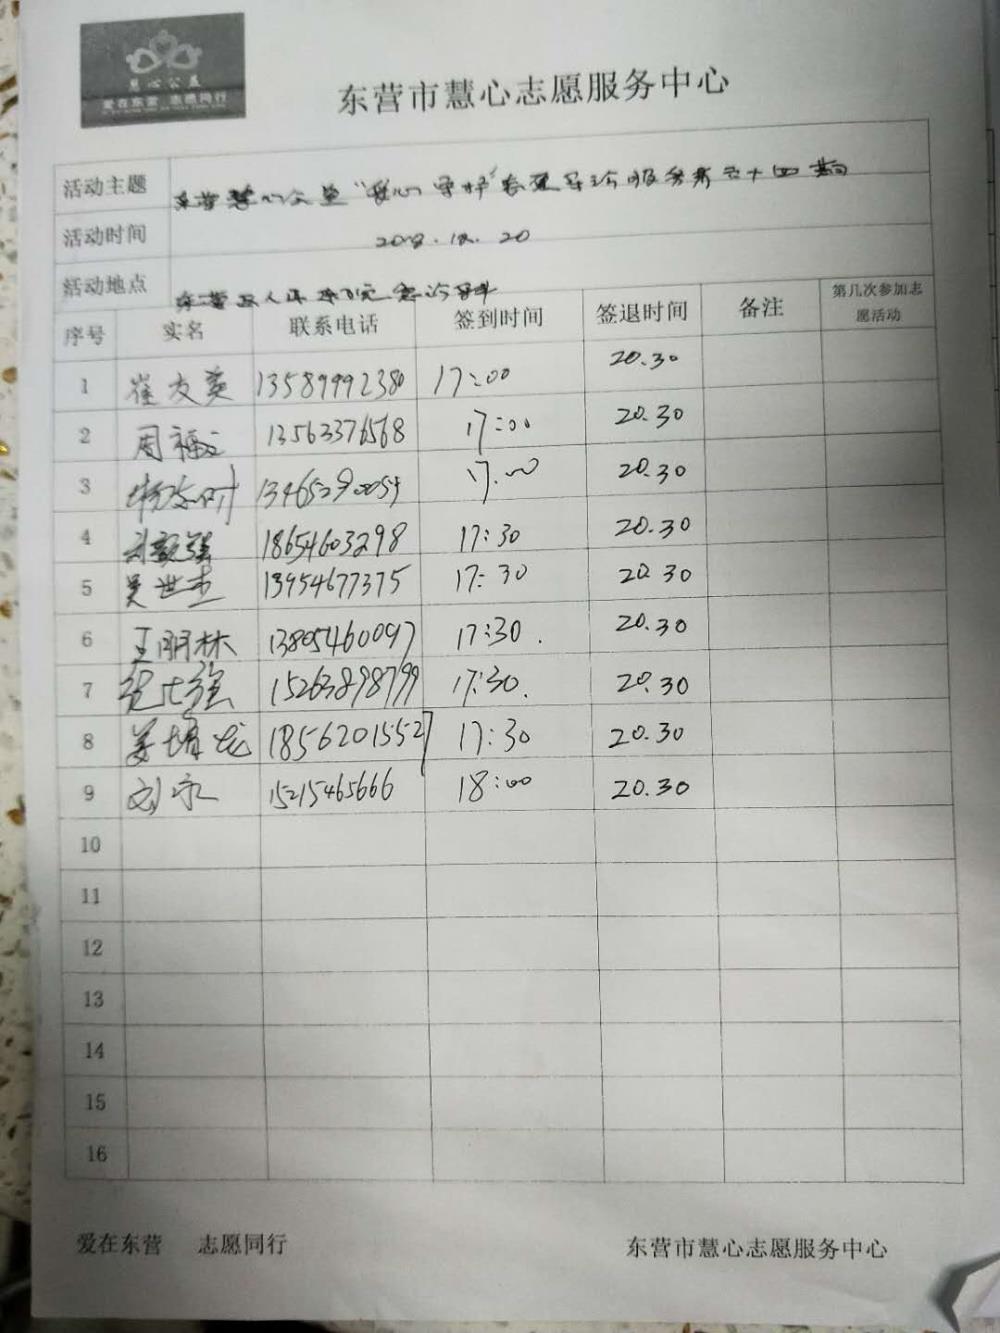 慧心公益
爱在东营 志愿同行
东营市慧心志愿服务中心
活动主题 东营慧心公益"爱心守护"急诊导诊服务第六十四期
活动时间 2018.12.20
活动地点 东营区人民医院急诊导诊
序号 实名 联系电话 签到时间 签退时间 备注 第几次参加志愿活动
1 崔友英 13589992380 17:00 20.30
2 周福 13563376568 17:00 20.30
3 13465290059 17.00 20.30
4 18654603298 17:30 20.30
5 吴世杰 13954677375 17:30 20.30
6 王明林 13805460097 17:30. 20.30
7 15263898799 17:30. 20.30
8 姜增龙 18562015527 17:30 20.30
9 刘永 15215465666 18:00 20.30
10
11
12
13
14
15
16
爱在东营 志愿同行 东营市慧心志愿服务中心